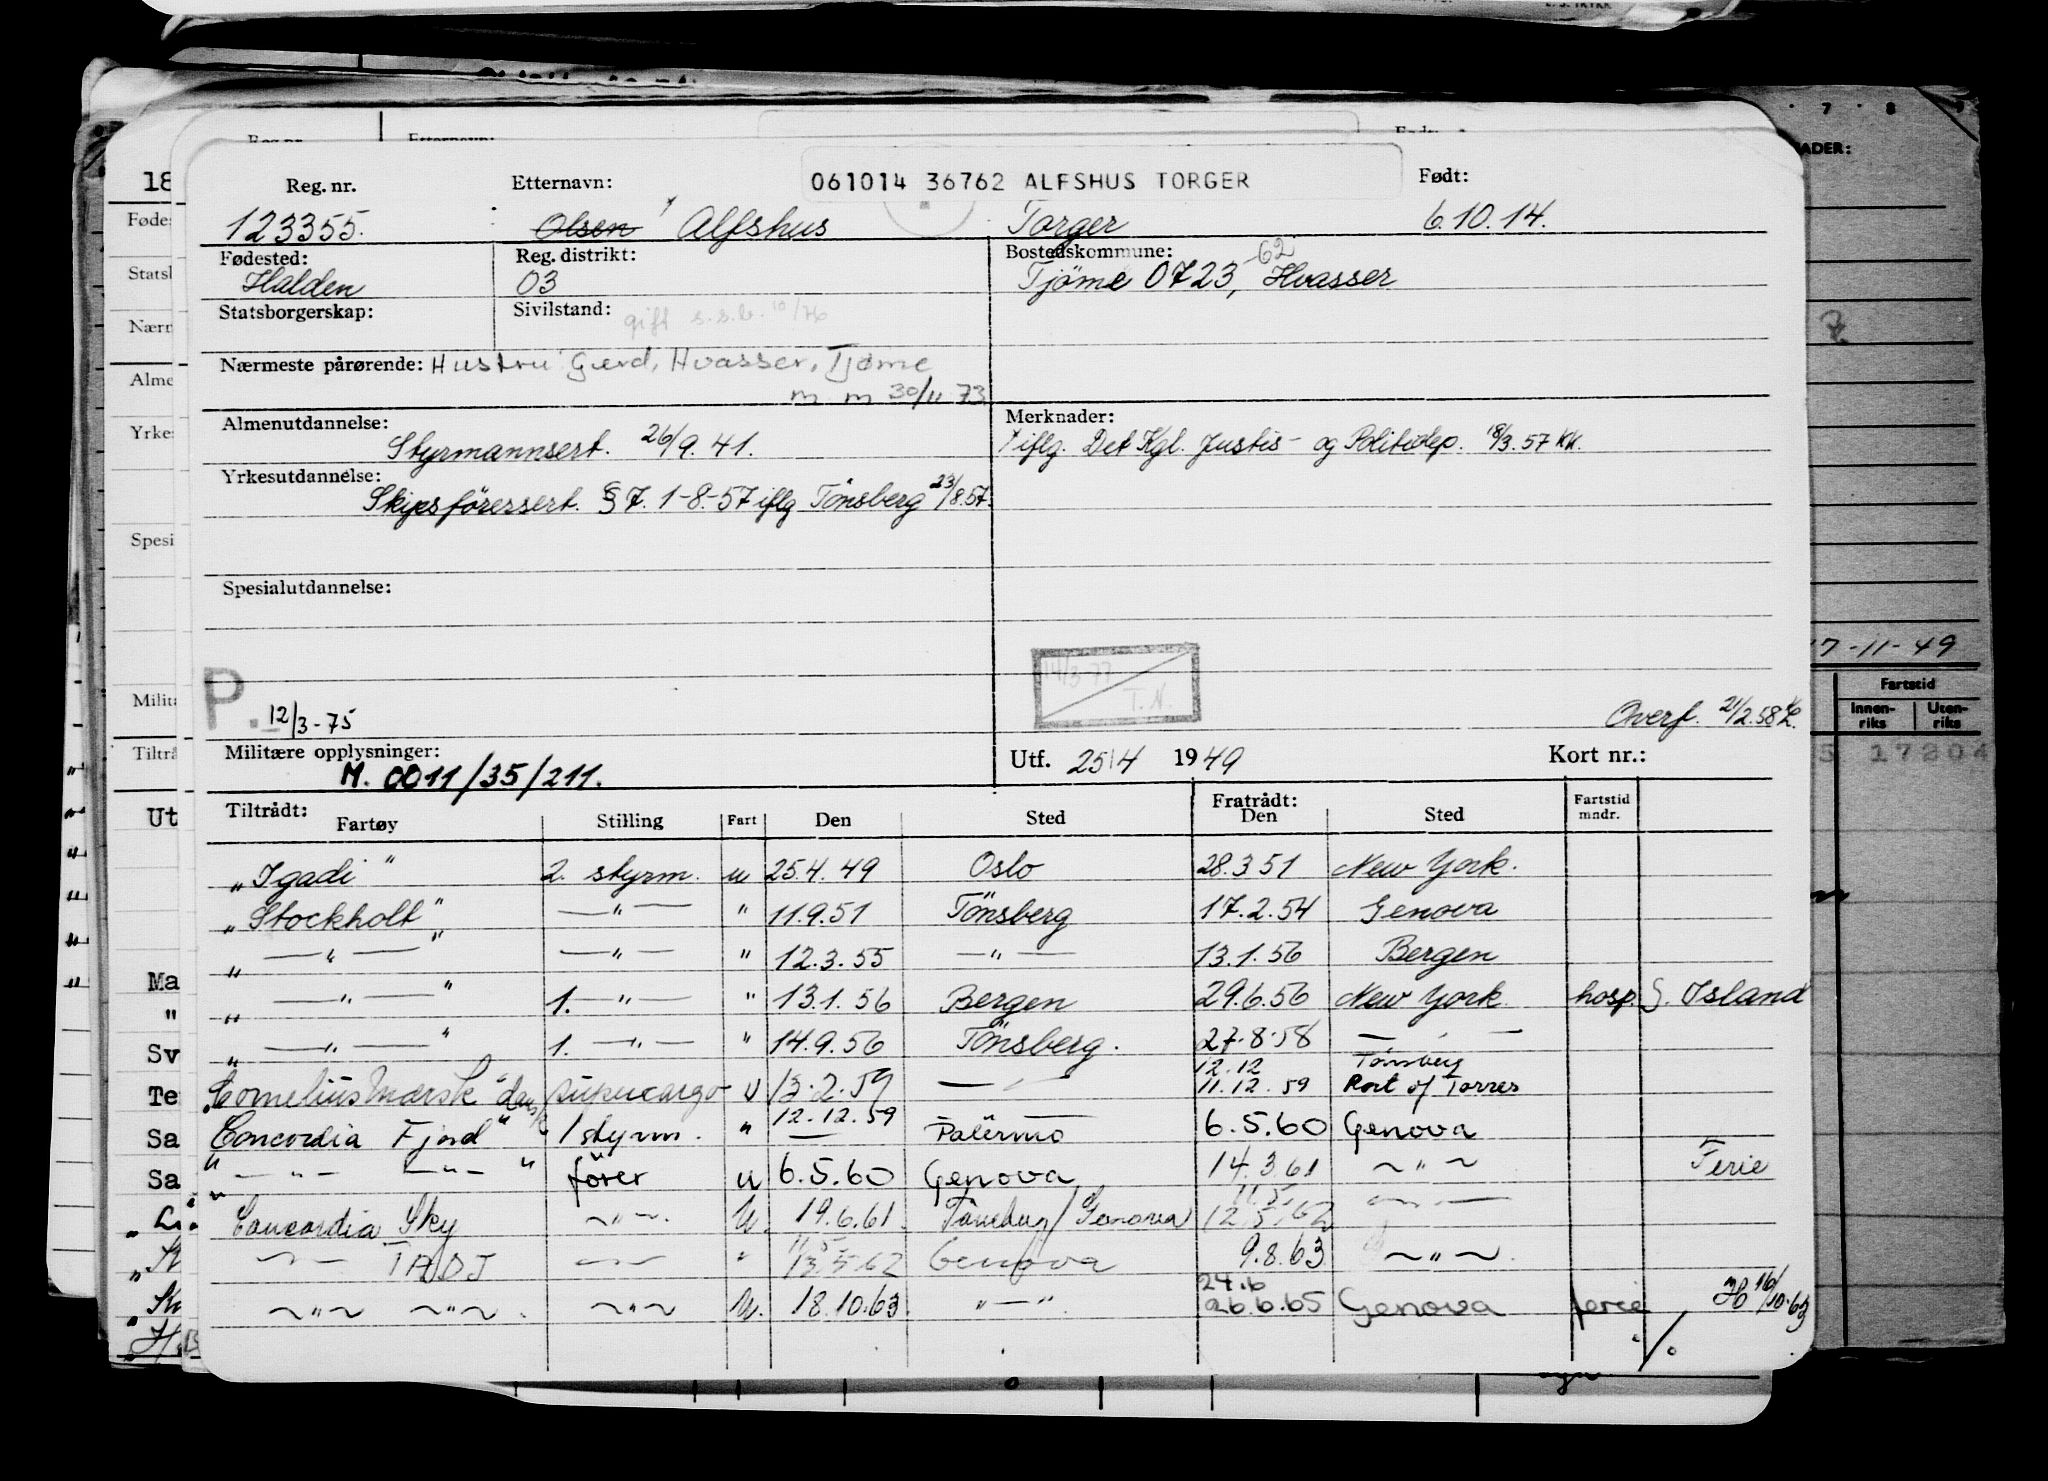 Reg. nr. Etternavn: 061014 36762 ALFSHUS TORGER Født:
123355. Olsen Alfshus Torger 6.10.14.
Fødested: Reg. distrikt: Bostedskommune:
Halden 03 Tjöme 0723, -62 Hvasser
Statsborgerskap: Sivilstand: gift s.s.b. 10/76
Nærmeste pårørende: Hustru Gerd, Hvasser, Tjøme
m m 30/11 73
Almenutdannelse: Merknader:
Styrmannsert. 26/9.41. iflg. Det Kgl. Justis- og Politidep. 18/3.57 KK.
Yrkesutdannelse:
Skipsförersert. §7. 1-8-57 iflg Tönsberg 23/8.57.
Spesialutdannelse:
14/3-77
T.N.
P. 12/3-75 Overf. 21/2.58
Militære opplysninger: Utf. 25/4 1949 Kort nr.:
M. 0011/35/211.
Tiltrådt: Fratrådt: Fartstid
Fartøy Stilling Fart Den Sted Den Sted mndr.
"Igadi" 2. styrm. u 25.4.49 Oslo 28.3 51 New York.
"Stockholt" —"— " 11.9.51 Tönsberg 17.2.54 Genova
" —"— " —"— " 12.3.55 —"— 13.1.56 Bergen
" —"— " 1. —"— " 13.1.56 Bergen 29.6.56 New York hosp. Island
" —"— " 1. —"— " 14.9.56 Tönsberg. 27.8.58 — " —
12.12 Tønsberg
"Cornelius Mærsk" dansk supercargo u 13.2.59 — " — 11.12.59 Port of Torres
12.12.59
"Concordia Fjord" 1 styrm. " — Palermo 6.5.60 Genova
" —"— —"— " förer u 6.5.60 Genova 14.3.61 ~"~ Ferie
11.5.
"Concordia Sky ~"~ U. 19.6.61. Tönsberg/Genova 12.5.62 —"—
11.5
—"— TADJ —"— " 13.5.62 Genova 9.8.63 ~"~.
24.6
~"~ ~"~. ~"~ U. 18.10.63. "—". 26.6.65 Genova ferie 16/10.63